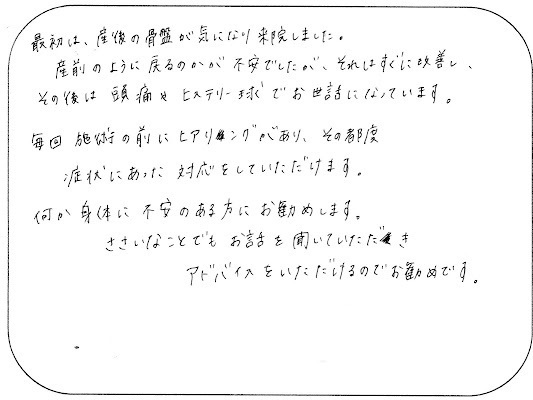 最初は、産後の骨盤が気になり来院しました。
産前のように戻るのかが不安でしたが、それはすぐに改善し、
その後は頭痛やヒステリー球でお世話になっています。
毎回施術の前にヒアリングがあり、その都度
症状にあった対応をしていただけます。
何か身体に不安のある方にお勧めします。
ささいなことでもお話を聞いていただき
アドバイスをいただけるのでお勧めです。